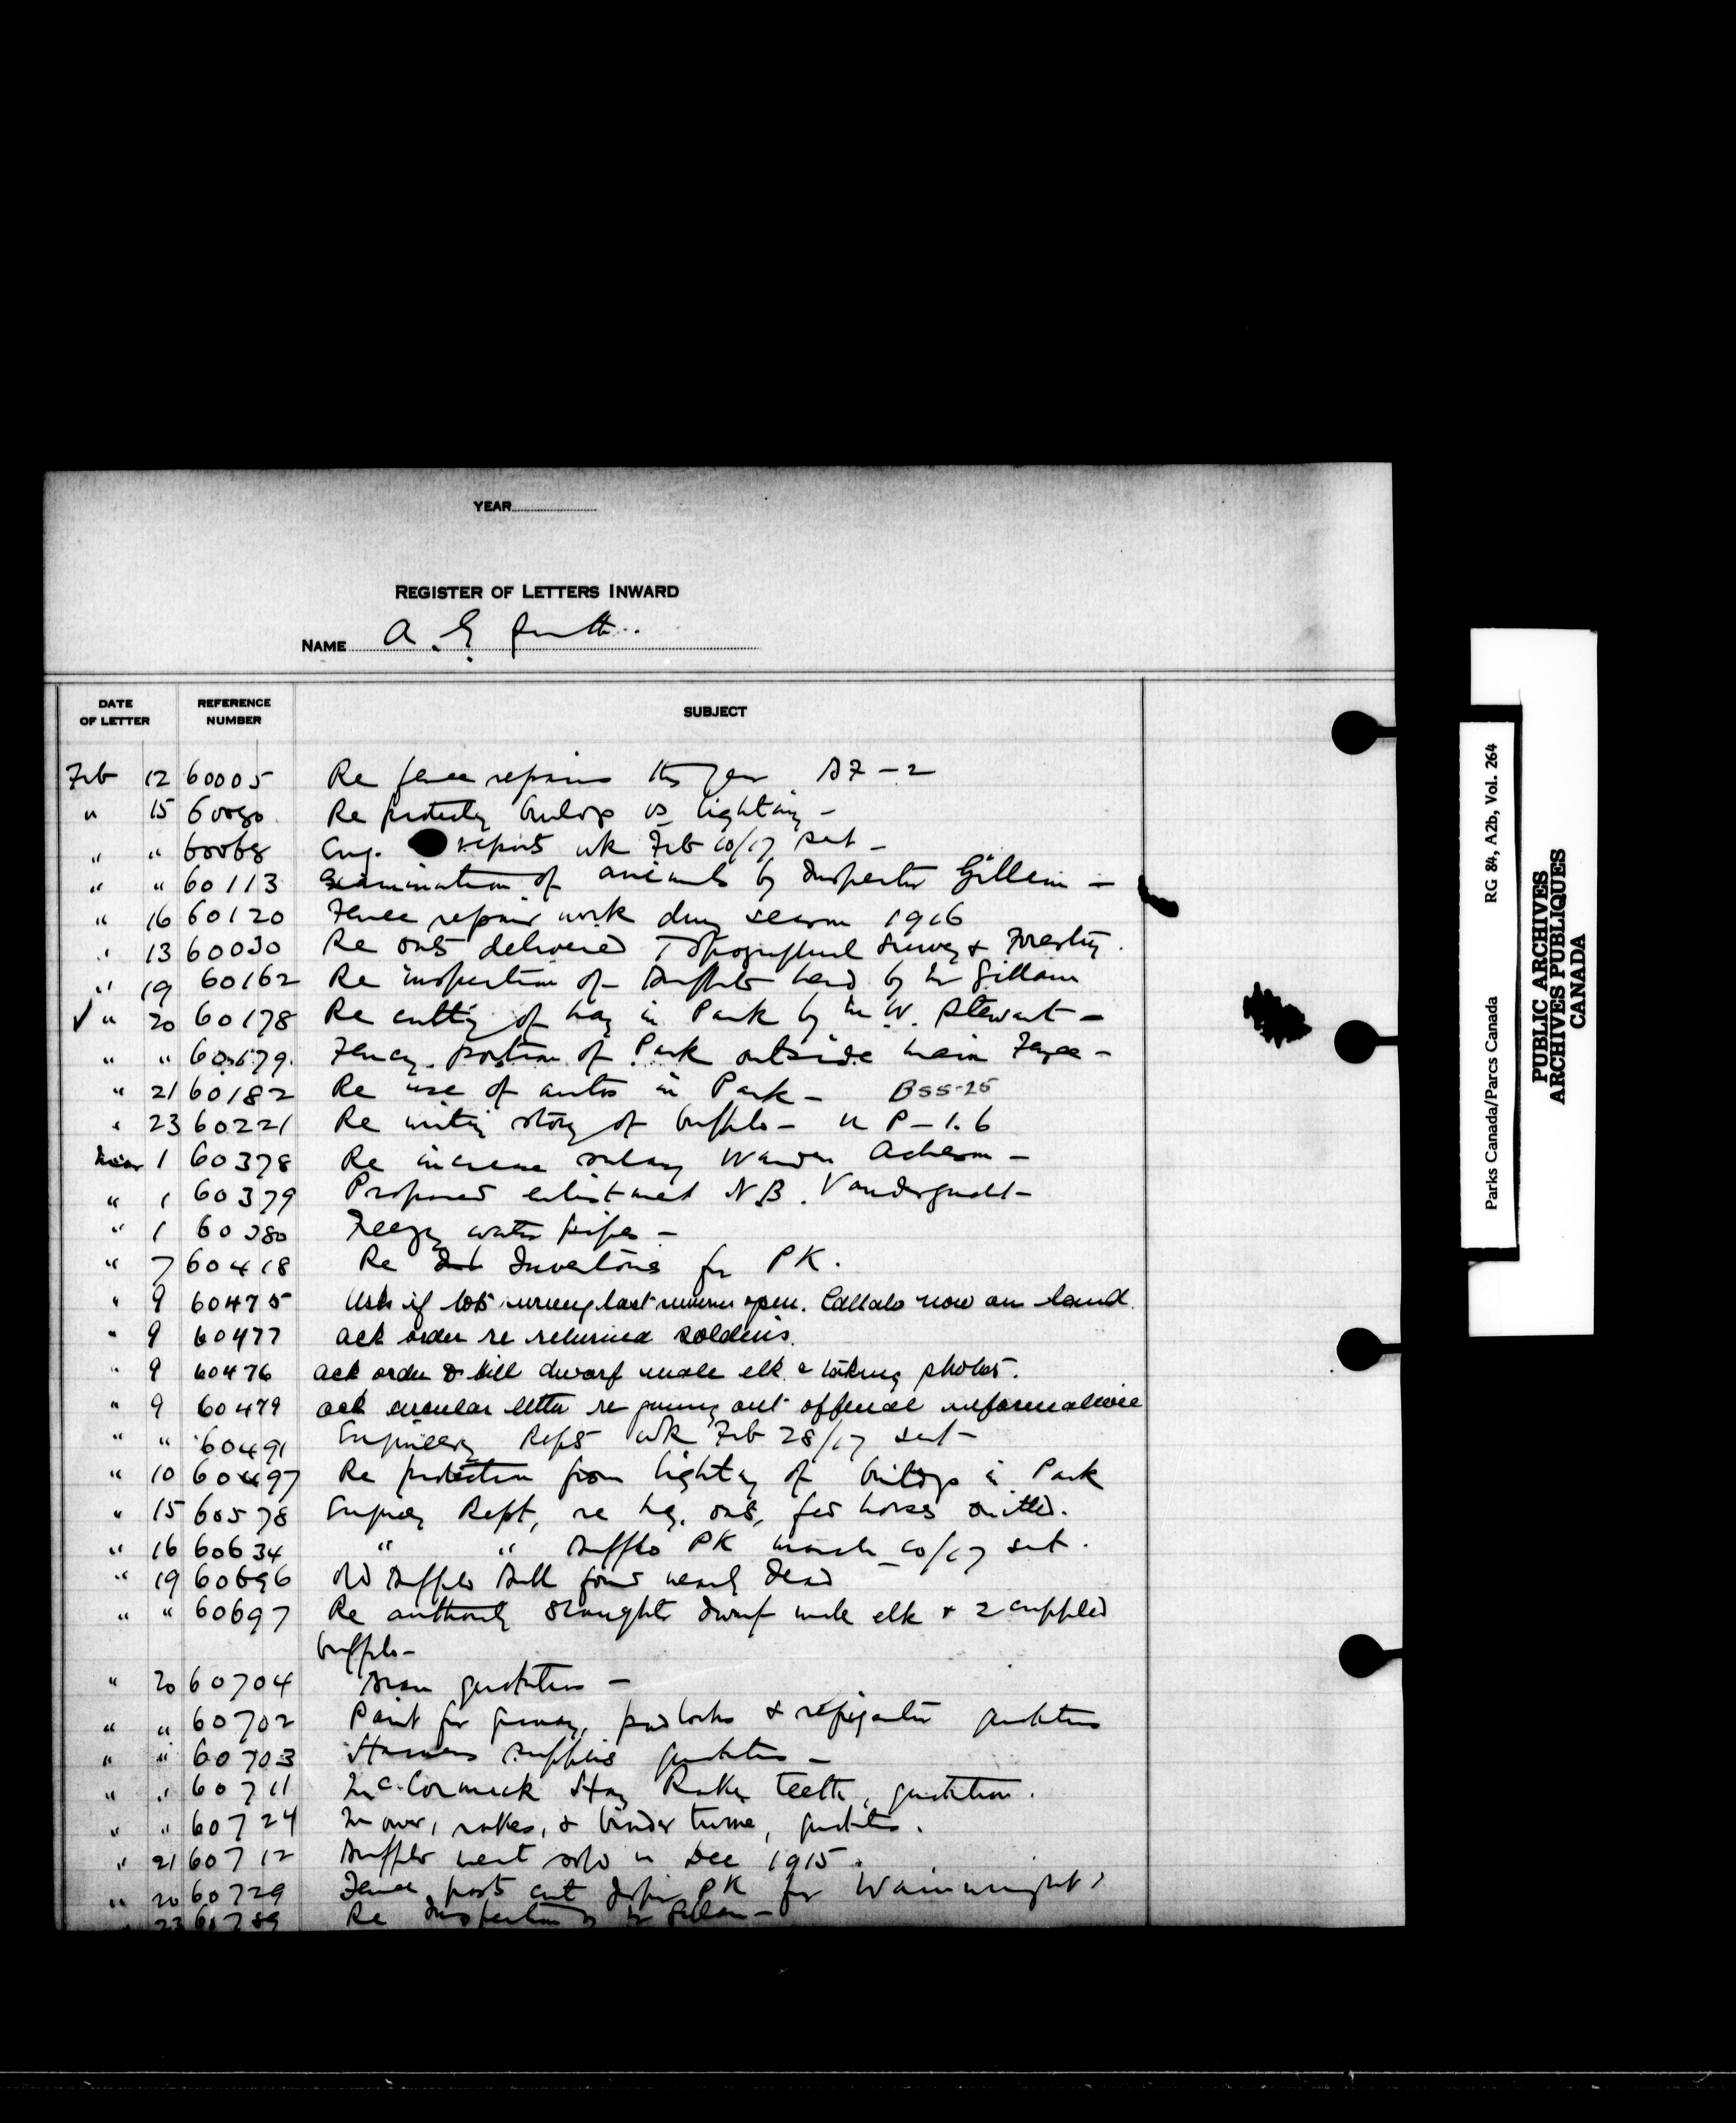 YEAR
REGISTER OF LETTERS INWARD
NAME A. E. Smith
DATE OF LETTER REFERENCE NUMBER SUBJECT
Feb 12 60005 Re fence repairs this year
" 15 Re protecting buildings vs lighting -
" " 60068 Eng. reports wk Feb 10/17 sent -
" " 60113 Examination of animals by Inspector Gillam -
" 16 60120 Fence repair work during season 1916
" 13 60030 Re oats delivered Topographical Survey & Forestry.
" 19 60162 Re inspection of Buffalo herd by Mr Gillam
✓ " 20 60178 Re cutting of hay in Park by Mr W. Stewart -
" " 60179 Fencing portion of Park outside main Fence -
" 21 60182 Re use of autos in Park - BSS-25
" 23 60221 Re writing story of buffalo - P-1.6
Mar 1 60378 Re increase salary Warden Acheson -
" 1 60379 Proposed enlistment N.B.
" 1 60380 Freezing water pipes -
" 7 60418 Re Inventories for PK.
" 9 60475 Asks if lots open. Cattalo now on hand.
" 9 60477 Ack order re returned soldiers.
" 9 60476 Ack order to kill dwarf male elk & taking photos.
" 9 60479 Ack circular letter re giving out official information
" " 60491 Engineering Repts wk Feb 28/17 sent -
" 10 60497 Re protection from lighting of buildings in Park
" 15 60578 Engineering Rept, re hay, oats, fed horses omitted.
" 16 60634 " " Buffalo PK March 10/17 sent.
" 19 60696 Old Buffalo Bull found nearly dead
" " 60697 Re authority slaughter dwarf male elk & 2 crippled
buffalo -
" 20 60704 quotations -
" " 60702 Paint for granary, padlocks & refrigerator quotations
" " 60703 Harness supplies quotations -
" " 60711 McCormick Hay Rake teeth, quotation.
" " 60724 Mower, rakes, & binder twine, quotations.
" 21 60712 Buffalo meat sold in Dec 1915.
" 20 60729 Fence posts cut PK for Wainwright
" 23 60789 Re Inspection by Mr Gillam -
Parks Canada/Parcs Canada RG 84, A2b, Vol. 264
PUBLIC ARCHIVES
ARCHIVES PUBLIQUES
CANADA